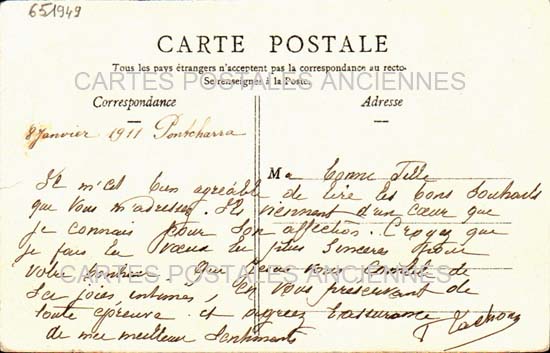 651949
CARTE POSTALE
Tous les pays étrangers n'acceptent pas la correspondance au recto-
Se renseigner à la Poste.
CARTES POSTALES ANCIENNES
Correspondance
Adresse
8 Janvier 1911 Pontcharra
Ma bonne
Il m'est bien agréable de lire les bons souhaits
que vous m'adressez. Ils viennent d'un cœur que
je connais pour son affection. Croyez que
je fais les vœux les plus sincères pour
votre bonheur. Que Jésus vous comble de
Ses joies intimes, en vous préservant de
CARTES POSTALES ANCIENNES
toute épreuve et agréez l'assurance
de mes meilleurs sentiments